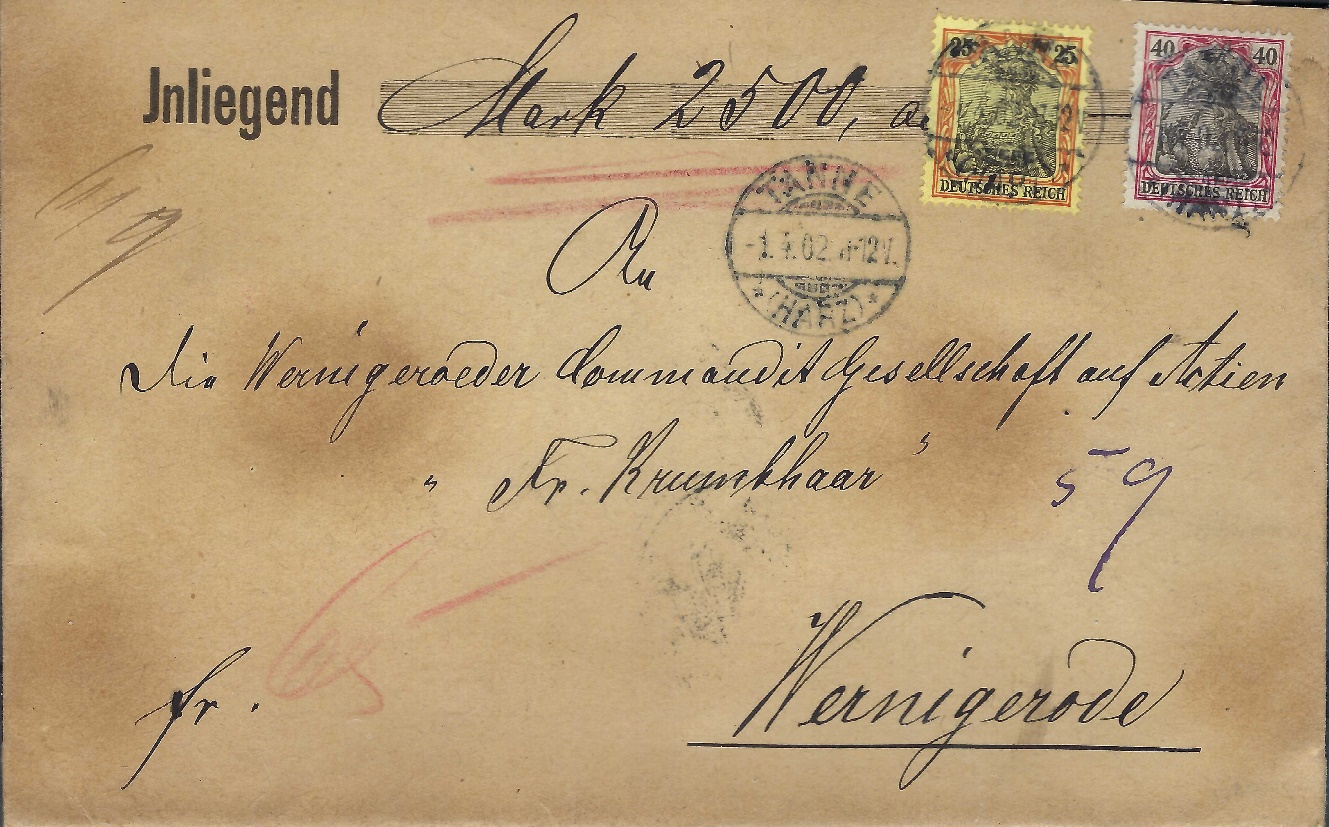 Jnliegend Mark 2500,
25 25
DEUTSCHES REICH
40 40
DEUTSCHES REICH
TANNE
-1.4.02. 11-12V.
* (HARZ) *
An
die Wernigeroeder Commandit Gesellschaft auf Actien
" Fr. Krumbhaar "
59
fr.
65
Wernigerode